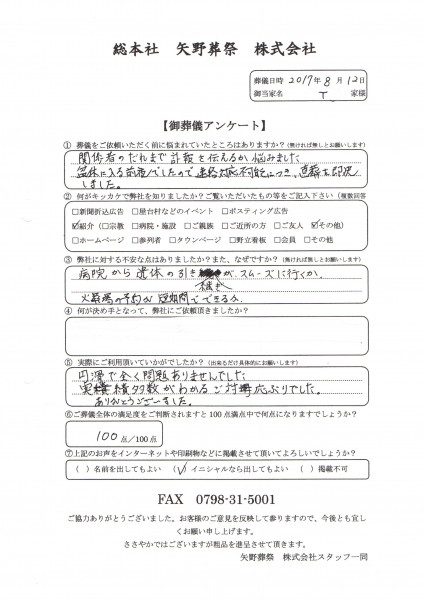 総本社 矢野葬祭 株式会社
葬儀日時 2017年8月12日
御当家名 T 家様
【御葬儀アンケート】
① 葬儀をご依頼いただく前に悩まれていたところはありますか？(無ければ無しとお願いします)
関係者のだれまで訃報を伝えるか悩みました
盆休に入る前夜でしたので連絡対応不可能につき、直葬を即決
しました。
② 何がキッカケで弊社を知りましたか？ご覧いただいたもの等をご記入下さい(複数回答
□新聞折込広告 □屋台村などのイベント □ポスティング広告
☑紹介(□宗教 □病院・施設 □ご親族 □ご近所の方 □ご友人 ☑その他)
□ホームページ □参列者 □タウンページ □野立看板 □会員 □その他
③ 弊社に対する不安な点はありましたか？また、なぜですか？(無ければ無しとお願いします)
病院から遺体の引き継ぎがスムーズに行くか、
火葬場の予約が短期間でできるか
④ 何が決め手となって、弊社にご依頼頂きましたか？
⑤ 実際にご利用頂いていかがでしたか？(出来るだけ具体的にお願いします)
円滑で全く問題ありませんでした
実績積多数がわかるご対応ぶりでした。
ありがとうございました。
⑥ ご葬儀全体の満足度をご判断されますと100点満点中で何点になりますでしょうか？
100点/100点
⑦上記のお声をインターネットや印刷物などに掲載させて頂いてよろしいでしょうか？
( )名前を出してもよい (✓)イニシャルなら出してもよい ( )掲載不可
FAX 0798-31-5001
ご協力ありがとうございました。お客様のご意見を反映して参りますので、今後とも宜し
くお願い申し上げます。
ささやかではございますが粗品を進呈させて頂きます。
矢野葬祭 株式会社スタッフ一同